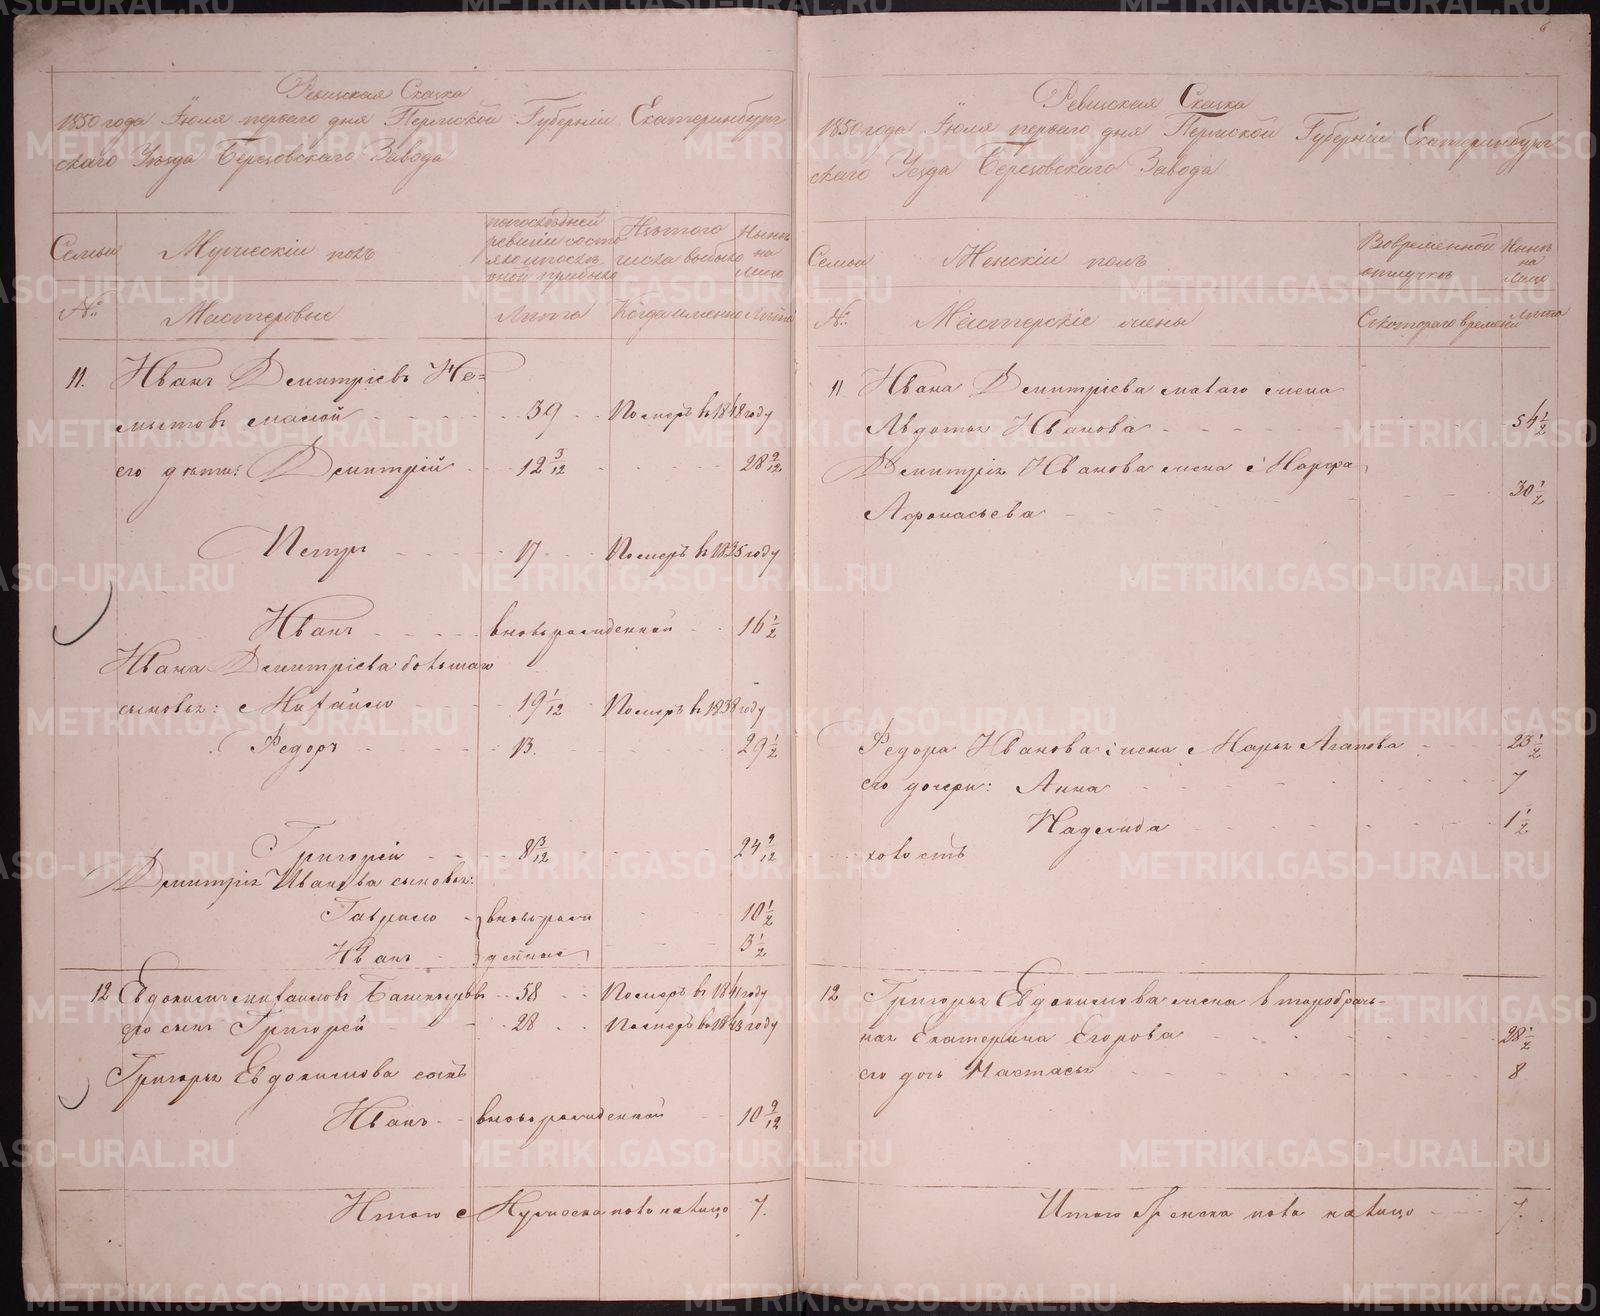 Ревизская Сказка
1850 года Июля перваго дня Пермской Губернiи Екатеринбург
скаго Уезда Березовскаго Завода
Семьи
Мужескiй полъ
попоследней
ревизiи состо
яло ипосле
оной прибыло
Изътого
числа выбыло
Ныне
на
лицо
№:
Мастеровые
Лета
Когда именно
Лета
11. Иванъ Дмитрiевъ
малой 39 Померъ в 1848 году
его дети: Дмитрiй 12 3/12 28 9/12
Петръ 17 Померъ в 1835 году
Иванъ вновьрожденной 16 1/2
Ивана Дмитрiева большаго
сыновья: Михайло 19 1/12 Померъ в 1838 году
Федоръ 13. 29 1/2
Григорей 8 3/12 24 9/12
Дмитрiя Иванова сыновья:
Гаврило вновьрож 10 1/2
Иванъ денные 3 1/2
12 Евдокимъ михаиловъ Башкирцовъ 58 Померъ в 1841 году
его сынъ Григорей 28 Померъ в 1843 году
Григорья Евдокимова сынъ
Иванъ вновьрожденной 10 9/12
Итого Мужеска пола налицо 7.
6
Ревизская Сказка
1850 года Июля перваго дня Пермской Губернiи Екатеринбург
скаго Уезда Березовскаго Завода
Семьи
Женскiй полъ
Вовременной
отлучке
Ныне
на
Лицо
№:
Мастерскiе жены
Скотораго времени
Лета
11 Ивана Дмитрiева малаго жена
Авдотья Иванова 54 1/2
Дмитрiя Иванова жена Марфа
Афонасьева 30 1/2
Федора Иванова жена Марья Агапова 23 1/2
его дочери: Анна 7
Надежда 1 1/2
холостъ
12 Григорья Евдокимова жена второбрач-
ная Екатерина Егорова 28 1/2
его дочь Настасья 8
Итого Женска пола налицо 7.
METRIKI.GASO-URAL.RU